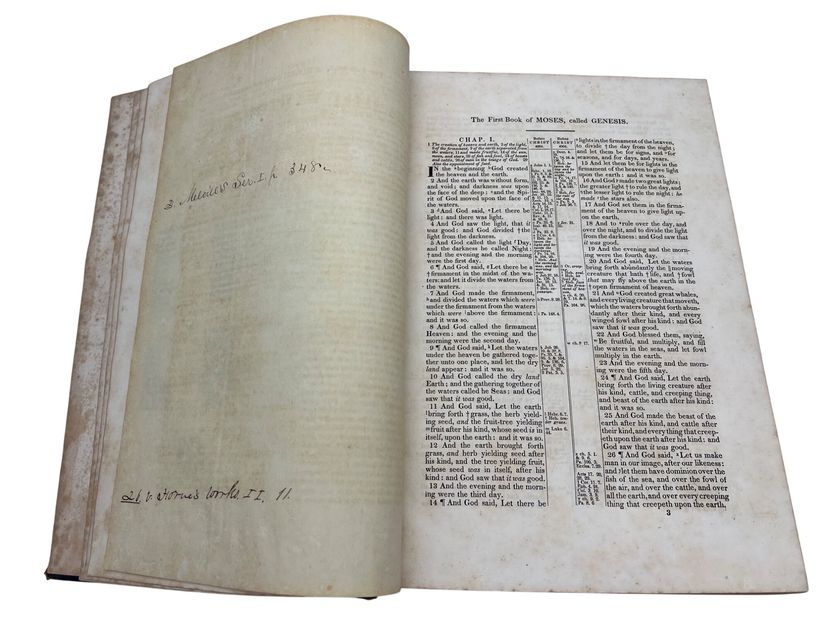 3 Melvill's Ser. I. p. 348.
26 v. Horne's Works II. 11.
The First Book of MOSES, called GENESIS.
CHAP. I.
1 The creation of heaven and earth, 3 of the light,
6 of the firmament, 9 of the earth separated from
the waters, 11 and made fruitful, 14 of the sun,
moon, and stars, 20 of fish and fowl, 24 of beasts
and cattle, 26 of man in the image of God. 29
Also the appointment of food.
IN the beginning God created
the heaven and the earth.
2 And the earth was without form,
and void; and darkness was upon
the face of the deep: and the Spi-
rit of God moved upon the face of
the waters.
3 And God said, Let there be
light: and there was light.
4 And God saw the light, that it
was good: and God divided †the
light from the darkness.
5 And God called the light Day,
and the darkness he called Night:
†and the evening and the morning
were the first day.
6 ¶ And God said, Let there be a
†firmament in the midst of the wa-
ters: and let it divide the waters from
the waters.
7 And God made the firmament,
and divided the waters which were
under the firmament from the waters
which were above the firmament:
and it was so.
8 And God called the firmament
Heaven: and the evening and the
morning were the second day.
9 ¶ And God said, Let the waters
under the heaven be gathered toge-
ther unto one place, and let the dry
land appear: and it was so.
10 And God called the dry land
Earth; and the gathering together of
the waters called he Seas: and God
saw that it was good.
11 And God said, Let the earth
bring forth †grass, the herb yield-
ing seed, and the fruit-tree yielding
fruit after his kind, whose seed is in
itself, upon the earth: and it was so.
12 And the earth brought forth
grass, and herb yielding seed after
his kind, and the tree yielding fruit,
whose seed was in itself, after his
kind: and God saw that it was good.
13 And the evening and the morn-
ing were the third day.
14 ¶ And God said, Let there be
Before
CHRIST
4004.
Before
CHRIST
4004.
lights in the firmament of the heaven,
to divide †the day from the night;
and let them be for signs, and for
seasons, and for days, and years.
15 And let them be for lights in the
firmament of the heaven to give light
upon the earth: and it was so.
16 And God made two great lights;
the greater light †to rule the day, and
the lesser light to rule the night: he
made the stars also.
17 And God set them in the firma-
ment of the heaven to give light up-
on the earth,
18 And to rule over the day, and
over the night, and to divide the light
from the darkness: and God saw that
it was good.
19 And the evening and the morn-
ing were the fourth day.
20 And God said, Let the waters
bring forth abundantly the moving
creature that hath †life, and †fowl
that may fly above the earth in the
†open firmament of heaven.
21 And God created great whales,
and every living creature that moveth,
which the waters brought forth abun-
dantly after their kind, and every
winged fowl after his kind: and God
saw that it was good.
22 And God blessed them, saying,
Be fruitful, and multiply, and fill
the waters in the seas, and let fowl
multiply in the earth.
23 And the evening and the morn-
ing were the fifth day.
24 ¶ And God said, Let the earth
bring forth the living creature after
his kind, cattle, and creeping thing,
and beast of the earth after his kind:
and it was so.
25 And God made the beast of the
earth after his kind, and cattle after
their kind, and every thing that creep-
eth upon the earth after his kind: and
God saw that it was good.
26 ¶ And God said, Let us make
man in our image, after our likeness:
and let them have dominion over the
fish of the sea, and over the fowl of
the air, and over the cattle, and over
all the earth, and over every creeping
thing that creepeth upon the earth,
3